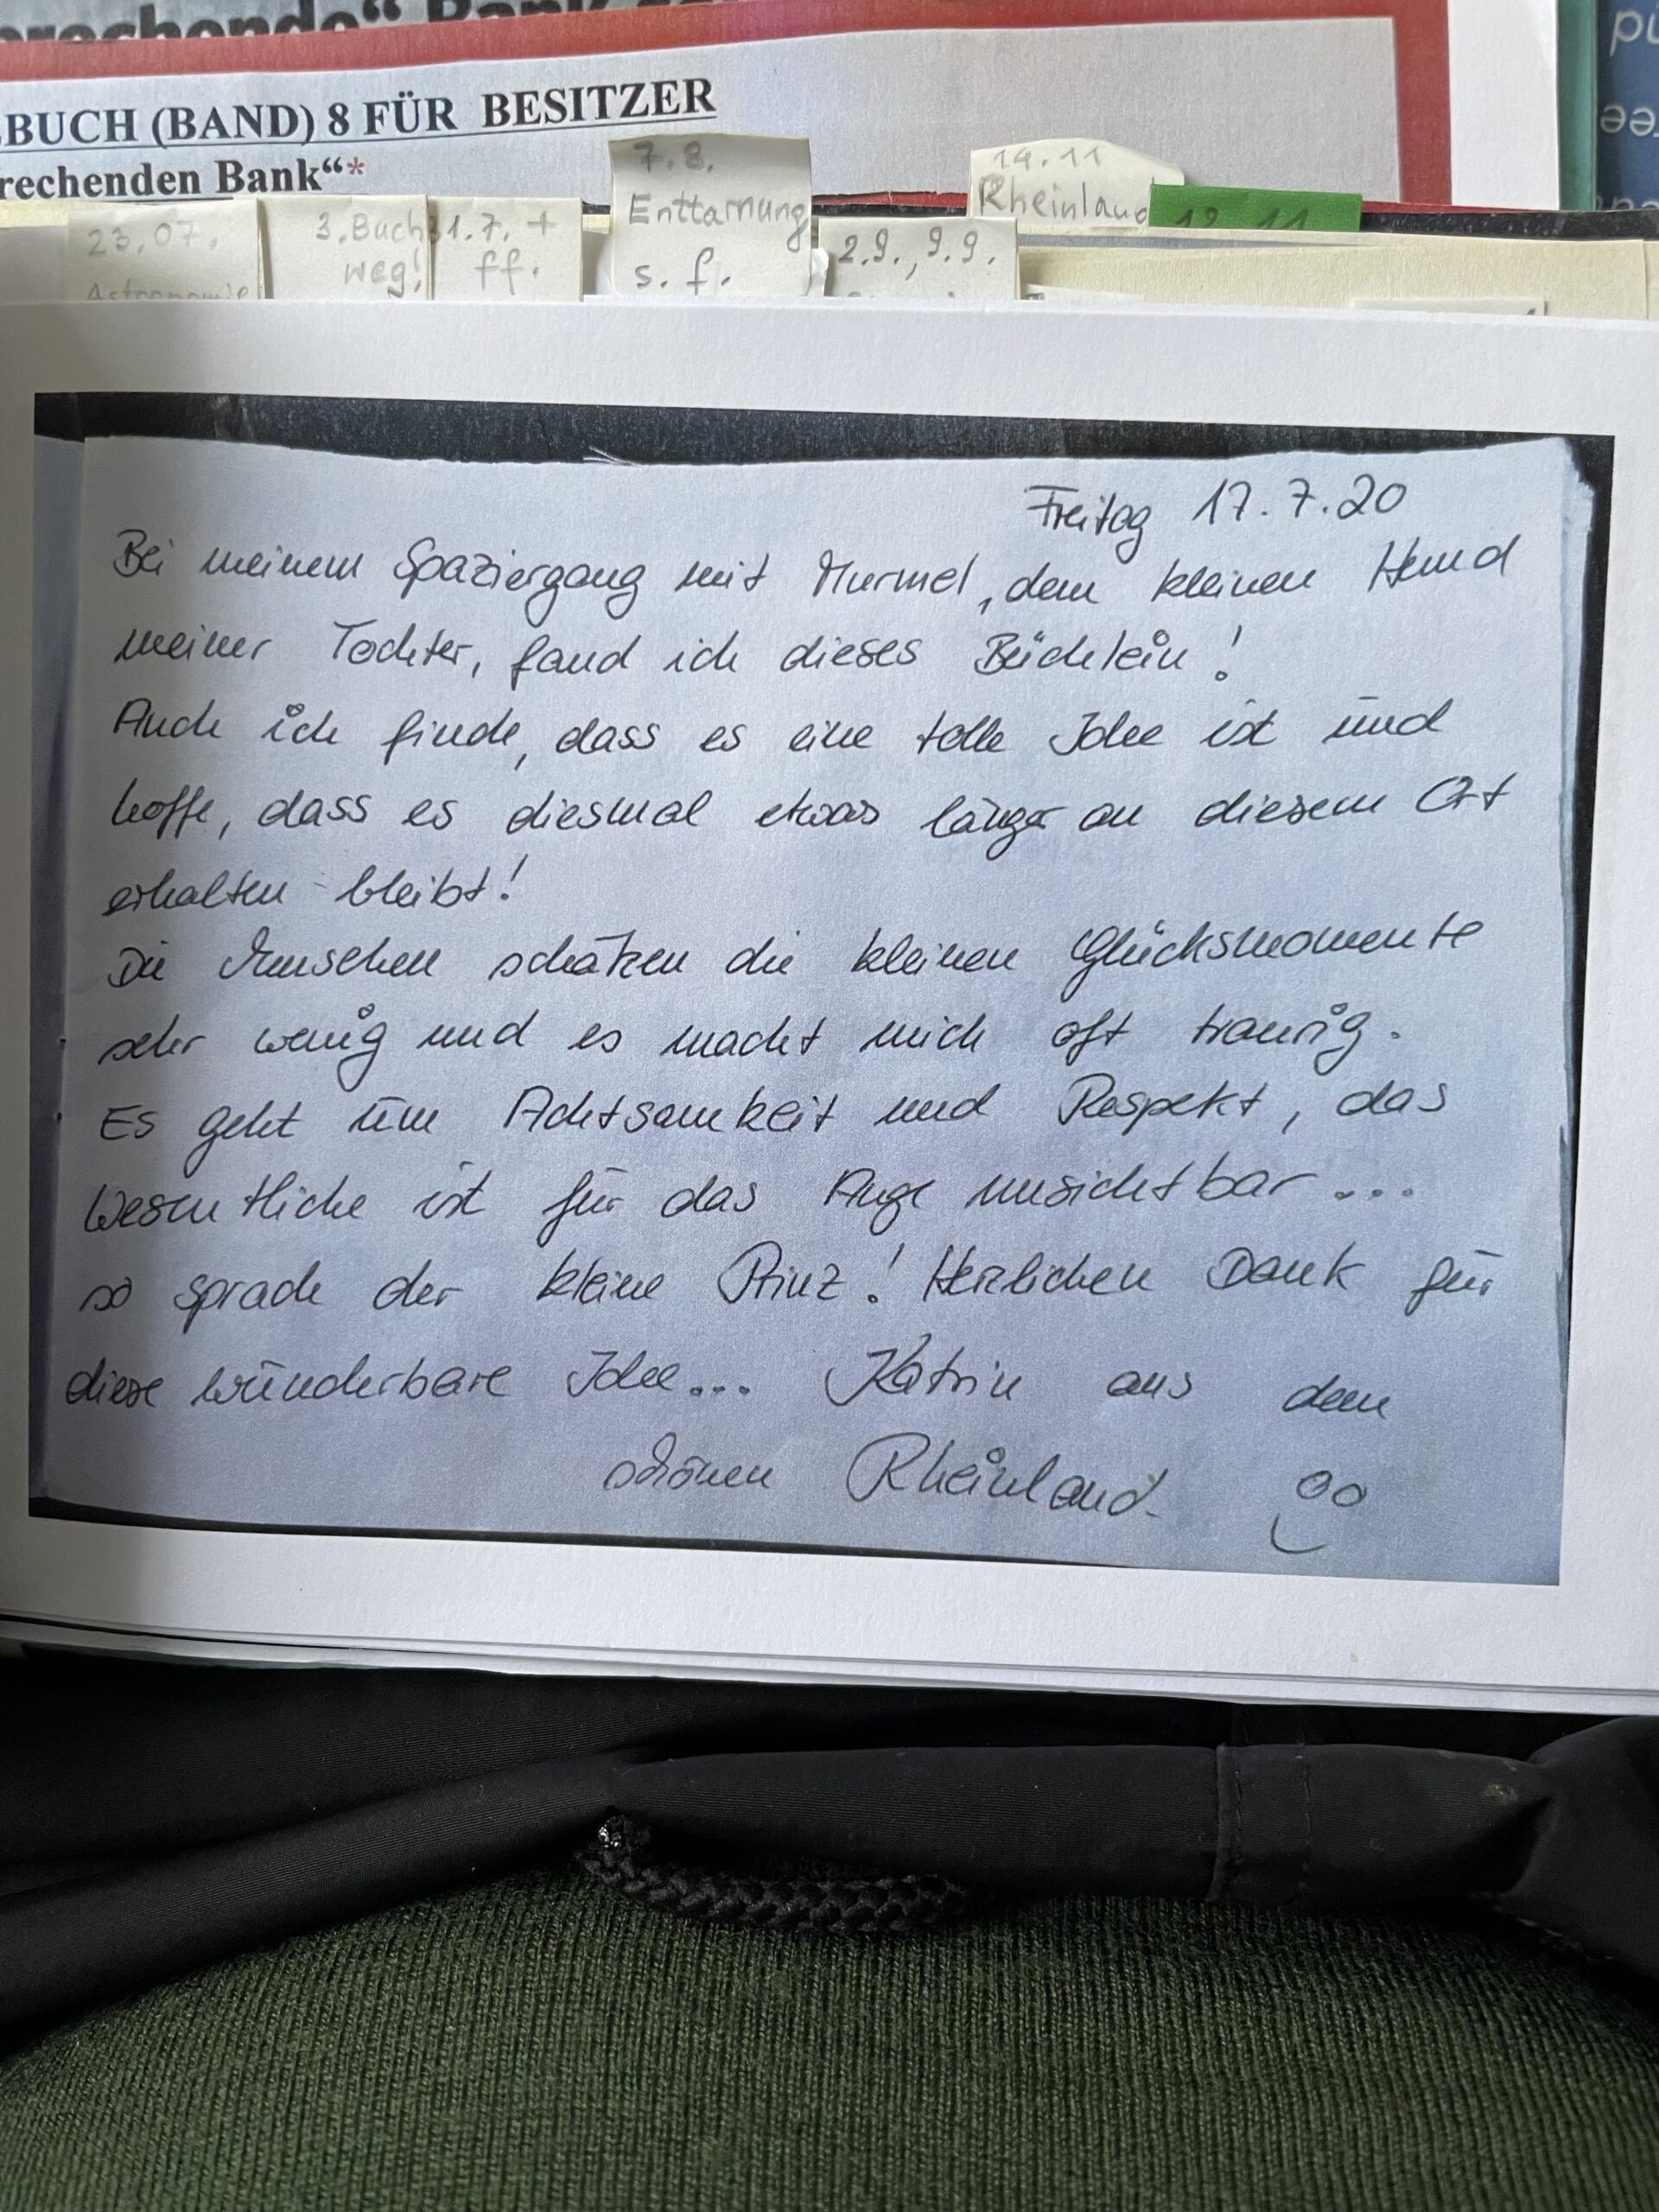 BUCH (BAND) 8 FÜR BESITZER
rechenden Bank“*
7.8.
Enttarnung
s. f.
14.11
Rheinland
12.11
23.07.
Astronomie
3. Buch
weg!
31.7. +
ff.
2.9., 9.9.
Freitag 17.7.20
Bei meinem Spaziergang mit Murmel, dem kleinen Hund
meiner Tochter, fand ich dieses Büchlein!
Auch ich finde, dass es eine tolle Idee ist und
hoffe, dass es diesmal etwas länger an diesem Ort
erhalten bleibt!
Die Menschen schätzen die kleinen Glücksmomente
sehr wenig und es macht mich oft traurig.
Es geht um Achtsamkeit und Respekt, das
Wesentliche ist für das Auge unsichtbar...
so sprach der kleine Prinz! Herzlichen Dank für
diese wunderbare Idee... Katrin aus dem
schönen Rheinland.